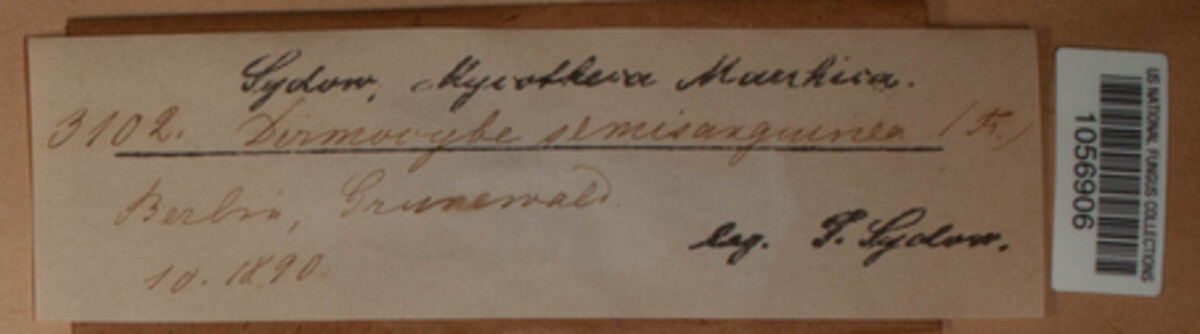 Sydow, Mycotheca Marchica.
3102. Dermocybe semisanguinea (Fr.)
Berlin, Grunewald.
10. 1890.
leg. P. Sydow.
US NATIONAL FUNGUS COLLECTIONS
1056906